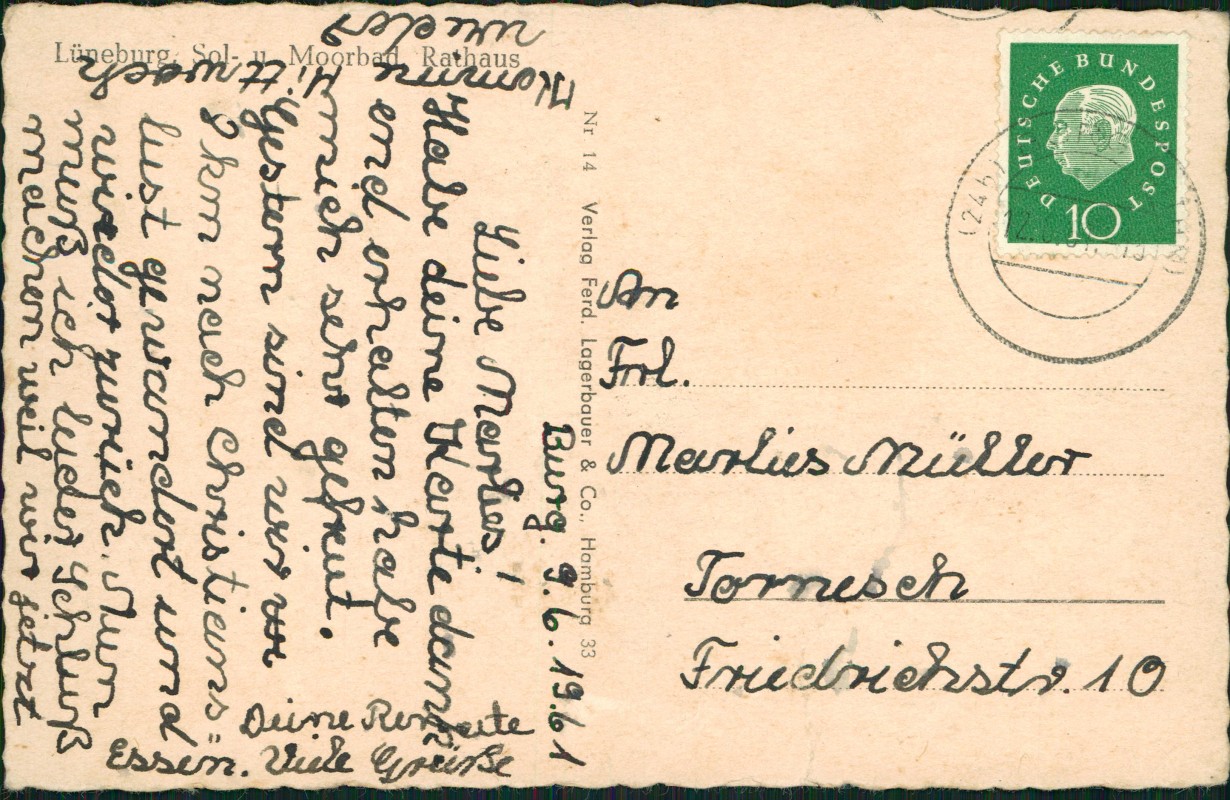 Lüneburg, Sol- u. Moorbad, Rathaus
Nr. 14 Verlag Ferd. Lagerbauer & Co., Hamburg 33
Burg. 9.6.1961
Liebe Marlies!
Habe deine Karte dank
end erhalten habe
mich sehr gefreut.
Gestern sind wir von
8 km nach Christians=
lust gewandert und
wieder zurück. Nun
muß ich leider Schluß
machen weil wir jetzt
Essen. Viele Grüße
Deine Renate
Komme Mittwoch
wieder
DEUTSCHE BUNDESPOST
10
(24b)
An
Frl.
Marlies Müller
Tornesch
Friedrichstr. 10